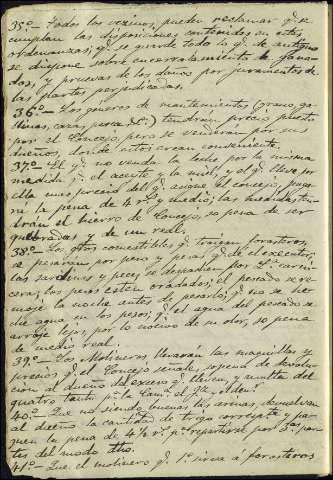 35º — Todos los vecinos, pueden reclamar q.e se
cumplan las disposiciones contenidas en estas
ordenanzas; q.e se guarde todo lo q.e de antiguo
se dispone sobre encorralamiento de gana-
dos, y pruebas de los daños por juramentos de
las partes perjudicadas.
36º — Los generos de mantenimientos (grano, ga-
llinas, caza, pesca &.) tendran precio puesto
por el Concejo, pero se venderan por sus
dueños, donde estos crean conveniente.
37º — El q.e no venda la leche por la misma
medida q.e el aceyte y la miel, y el q.e lleve por
ella mas precio del q.e asigne el concejo, pague
la pena de 4 r.s y medio; las medidas ten-
drán el hierro de Concejo, so pena de ser
quebradas y de un real.
38º — Los otros comestibles q.e traigan forasteros,
se pesarán por peso y pesas q.e dé el executor;
las sardinas y peces, se despachen por
los pesos esten oradados; el pescado no se re-
moje la noche antes de pesarlo; q.e no se le
eche agua en los pesos; q.e el agua del pescado se
arroje lejos, por lo nocivo de su olor, so pena
de medio real.
39º — Los Molineros, llevarán las maquillas y
precios q.e el Concejo señale, so pena de devolu-
ción al dueño del exceso q.e lleven, y multa del
cuatro tanto p.a la Cam.a el J.z y Den.r
40º — Que no siendo buenas las arinas devuelvan
al dueño la cantidad de trigo correspte y pa-
guen la pena de 4½ r.s p.a repartirse por 3.as par-
tes del modo dho.
41º — Que el molinero q.e 1º sirva á forasteros